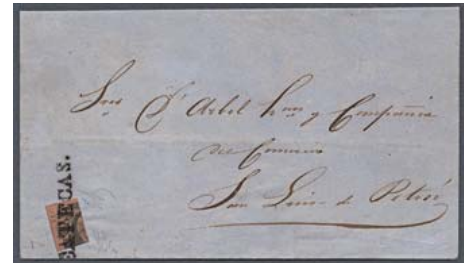 Sres
y Compañia
del Comercio
San Luis de Potosí
CATECAS.